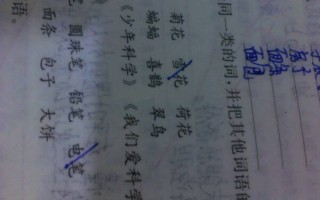 同一类的词,并把其他词语的
菊花 雪花 荷花
蝙蝠 喜鹊 翠鸟
《少年科学》《我们爱科学
笔 圆珠笔 铅笔 电笔
面条 包子 大饼
语。